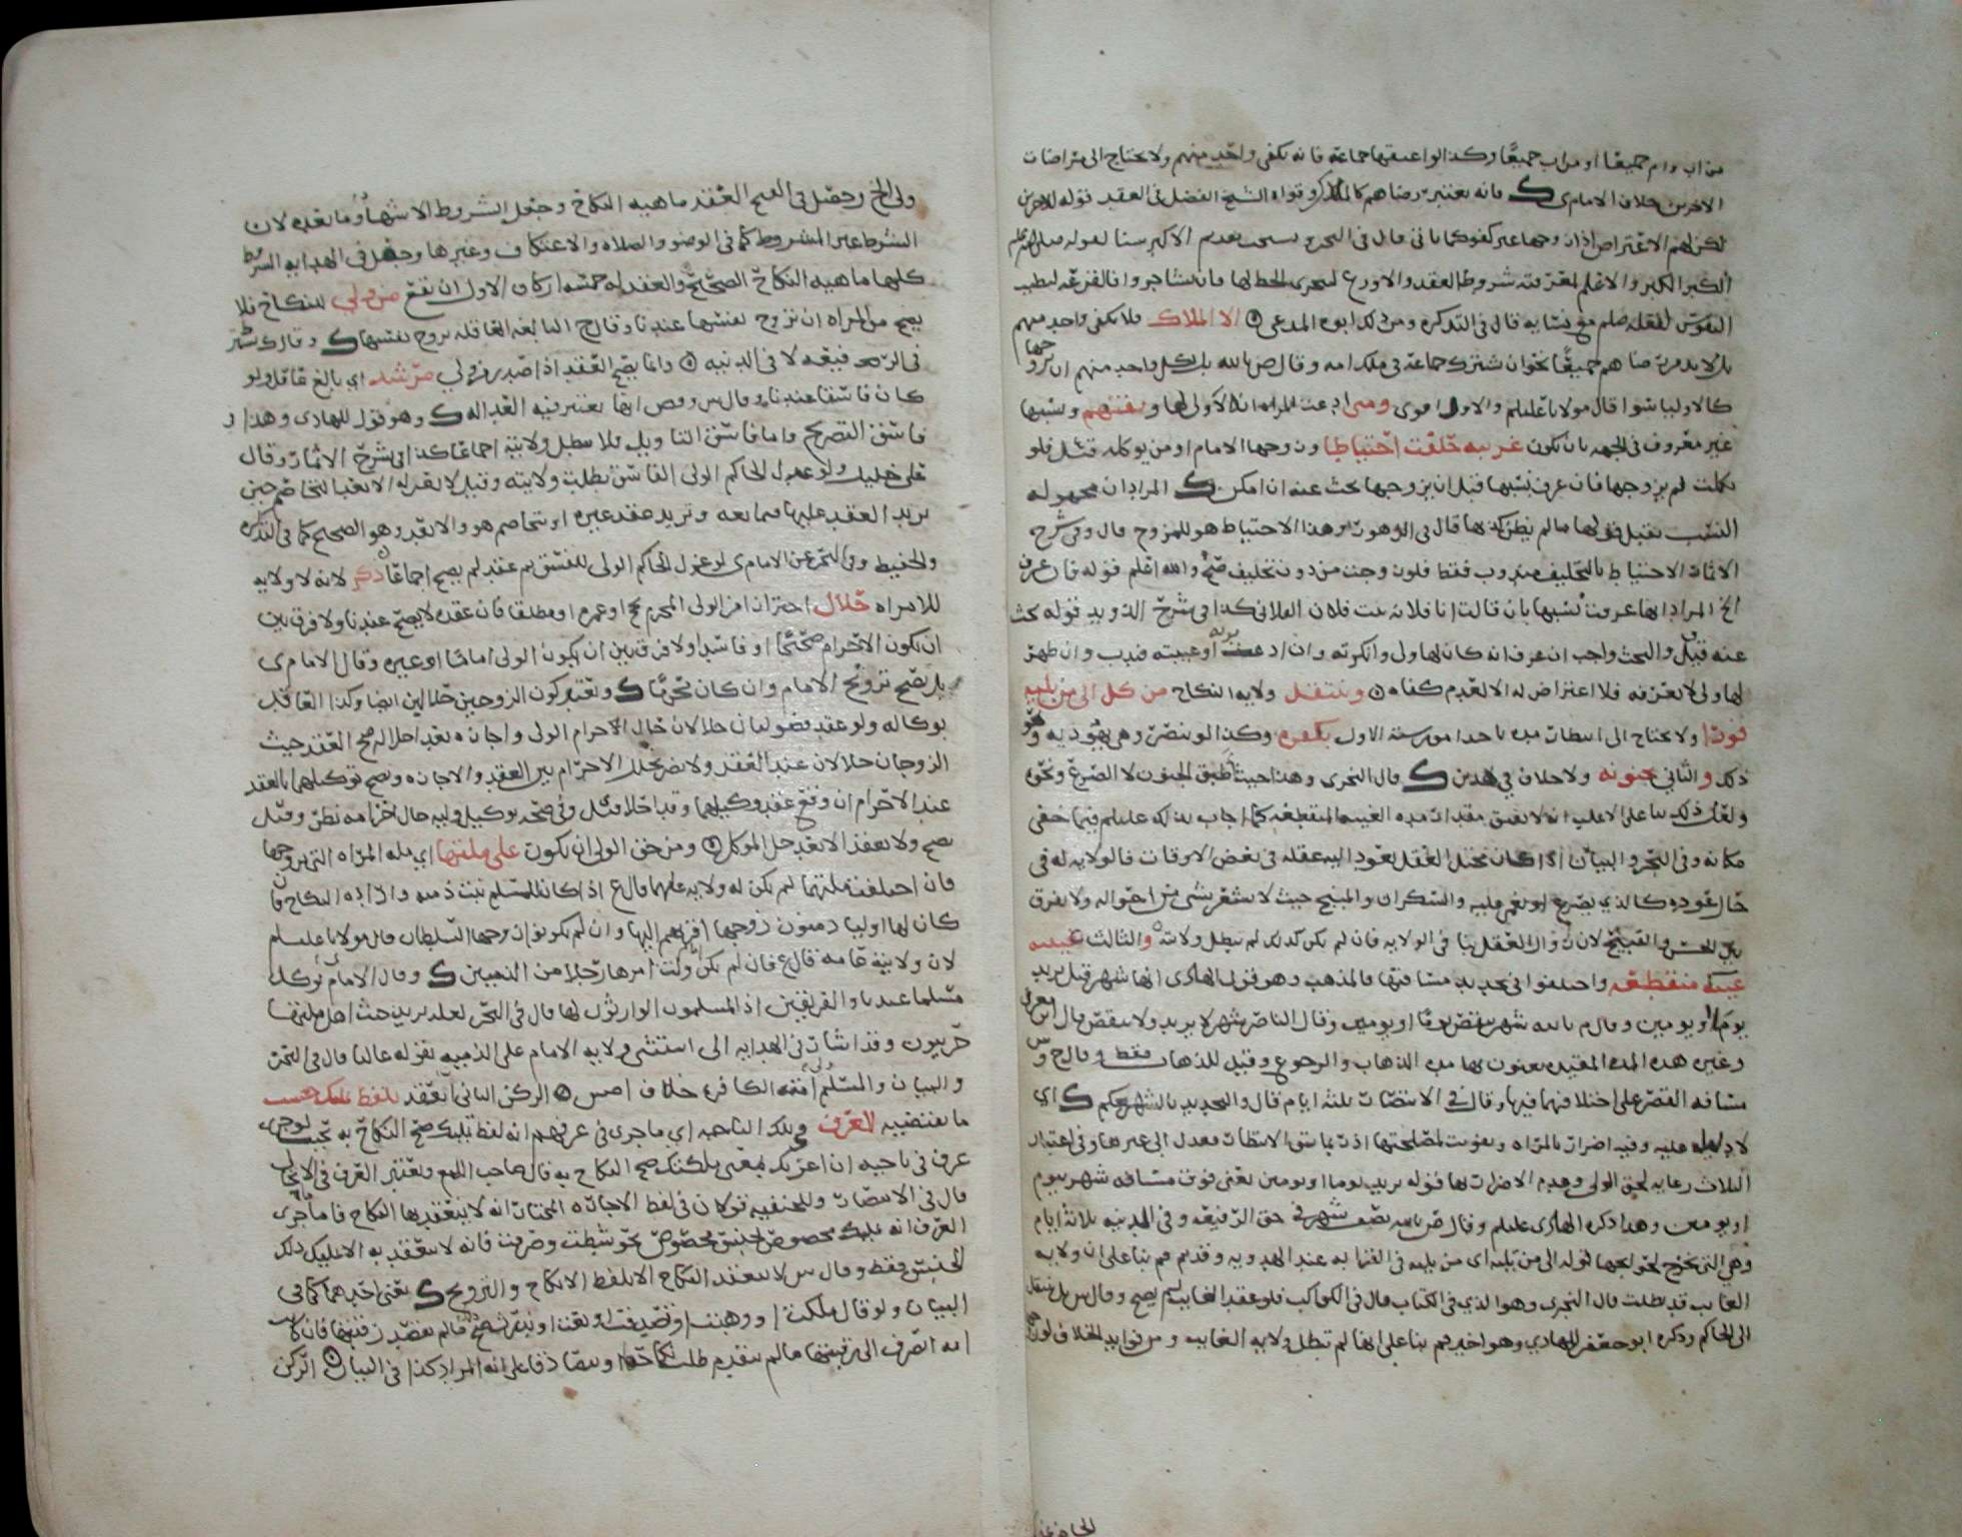 من اب وام جميعا او من اب جميعًا وكذا لو اعتقها جماعة فانه يكفي واحد منهم ولا يحتاج الى مراضات
الاخرين خلاف الامام ى ك فانه يعتبر رضاهم كالملاك وقواه الشيخ الفضل في العقد قوله
لكن لهم الاعتراض اذا زوجها غير كفو كما ياتي قال في البحر ويستحب تقديم الاكبر سنا لقوله صلى الله عليه وسلم
الكبر الكبر والاعلم لمعرفته شروط العقد والاورع لتحرى الحظ لها فان تشاجروا فالقرعه لتطيب
النفوس لفعله صلعم مع نسايه قال في التذكره ومن ذلك ابوه المدعى ۞ الا الملاك فلا يكفي واحد منهم
بل لا بد من رضاهم جميعًا نحو ان تشترك جماعة في ملك امه وقال ض بالله بل لكل واحد منهم ان يزوجها
كالاوليا سوا قال مولانا عليلم والاول اقوى ومتى ادعت المراه ان لا ولي لها و ونسبها
غير معروف في الجهه بان تكون غريبه حلفت احتياطا وزوجها الامام او من يوكله قيل فلو
نكلت لم يزوجها فان عرف نسبها قبل ان يزوجها بحث عنه ان امكن ك المراد ان مجهوله
النسب يقبل قولها ما لم يظن كذبها قال في الزهور وهذا الاحتياط هو للمزوج قال وفي شرح
الاثمار الاحتياط بالتحليف مندوب فقط فلو زوجت من دون تحليف صح والله اعلم قوله فان عرف
الخ المراد انها عرفت نسبها بان قالت انا فلانه بنت فلان الفلاني كذا في شرح الذويد قوله بحث
عنه قيل والبحث واجب ان عرف انه كان لها ولي وانكرته وان ادعت موته او غيبته ندب وان ظهر
لها ولي لا تعرفه فلا اعتراض له الا لعدم كفاه ۞ وتنتقل ولايه النكاح من كل الى من يليه
فورا ولا يحتاج الى انتظار مده باحد امور سته الاول بكفره وكذا لو تنصر وهي يهوديه وهو
ذكر والثاني جنونه ولا خلاف في هذين ك قال النجري وهذا حيث اطبق الجنون لا الصرع ونحوه
ولعل ذلك بنا على الاغلب انه لا يفيق مقدار مده الغيبه المنقطعه كما اجاب بذلك عليلم فيما خفي
مكانه وفي البحر والبيان اذا كان مختل العقل يعود اليه عقله في بعض الاوقات فالولايه له في
حال عوده كالذي يصرع او يغمى عليه والسكران والمبنج حيث لا يشعر بشي من احواله ولا يفرق
بين الحسن والقبيح لان زوال العقل ينا في الولايه فان لم يكن كذلك لم تبطل ولايته والثالث غيبته
غيبة منقطعه واختلفوا في تحديد مسافتها فالمذهب وهو قول الهادى انها شهر قيل يزيد
يوما او يومين وقال م بالله شهر ينقص يومًا او يومين وقال الناصر شهر لا يزيد ولا ينقص قال
وغيره هذه المده المقيده يعنون بها مده الذهاب والرجوع وقيل للذهاب فقط وقال ح وس
مسافه القصر على اختلافهما فيها وقال في الانتصار ثلثه ايام قال والتحديد بالشهر تحكم ك اي
لا دليل عليه وفيه اضرار بالمراه وتفويت لمصلحتها اذ ربما يشق الانتظار فتعدل الى غيرها وفي اعتبار
الثلاث رعايه لحق الولي وعدم الاضرار بها قوله يزيد يوما او يومين يعني فوق مسافه شهر بيوم
او يومين وهذا ذكره الهادى عليلم وقال ض بالله نصف شهر في حق الرفيعه وفي الدنيه ثلاثه ايام
وهي التي تخرج لحوايجها قوله الى من يليه اي من يليه في القرابه عند الهدويه وقديم م بنا على ان ولايه
الغايب قد بطلت قال النجرى وهو الذي في الكتاب قال في الكواكب فلو عقد الغايب لم يصح وقال س بل تنتقل
الى الحاكم وذكره ابو جعفر للهادي وهو اخير م بنا على انها لم تبطل ولايه الغايب ومن فوايد الخلاف
ولي الخ وجعل في الفتح العقد ماهيه النكاح وجعل الشروط الاشهاد وما بعده لان
الشرط غير المشروط كما في الوضو والصلاه والاعتكاف وغيرها وجعل في الهدايه الشروط
كلها ماهيه النكاح الصحيح والعقد له خمسه اركان الاول ان يقع من ولي للنكاح فلا
يصح من المراه ان تزوج نفسها عندنا وقال ح البالغه العاقله تزوج نفسها ك وقال
في الرفيعه لا في الدنيه ۞ وانما يصح العقد اذا صدر من ولي مرشد اي بالغ عاقل ولو
كان فاسقا عندنا وقال س وص انها يعتبر فيه العداله ك وهو قول للهادى وهذا في
فاسق التصريح واما فاسق التاويل فلا تبطل ولايته اجماعا كذا في شرح الاثمار وقال
على خليل ولو عزل الحاكم الولي الفاسق بطلت ولايته وقيل لا ينعزل الا بعد التخاصم حين
يريد العقد عليها فيمانعه وتريد عقد غيره او يتخاصم هو والابعد وهو الصحيح كما في التذكره
والحفيظ وفي البحر عن الامام ى لو عزل الحاكم الولي للفسق ثم عقد لم يصح اجماعًا ذكر لانه لا ولايه
للمراه حلال احتراز امن الولي المحرم بحج او عمره او مطلقا فان عقده لا يصح عندنا ولا فرق بين
ان يكون الاحرام صحيحًا او فاسدا ولا فرق بين ان يكون الولي اماما او غيره وقال الامام ى
بل يصح تزويج الامام وان كان محرمًا ك ويعتبر كون الزوجين حلالين ايضا وكذا العاقد
بوكاله ولو عقد فضوليان حلالان حال احرام الولي واجازه بعد احلاله صح العقد حيث
الزوجان حلالان عند العقد ولا يضر تخلل الاحرام بين العقد والاجازه ويصح توكيلهما بالعقد
عند الاحرام ان وقع عقد وكيلهما وقد احلا قيل وفي صحه توكيل وليه حال احرامه نظر وقيل
يصح ولا يعقد الا بعد حل الموكل ۞ ومن حق الولي ان يكون على ملتها اي مله المراه التي يزوجها
فان اختلفت ملتهما لم يكن له ولايه عليها قال ع اذا كان للمسلم بنت ذميه وارادت النكاح فان
كان لها اوليا ذميون زوجها اقربهم اليها وان لم يكونوا زوجها السلطان قال مولانا عليلم
لان ولايته عامه قال ع فان لم يكن وكلت امرها رجلا من الذميين ك وقال الامام يوكل
مسلما عندنا والفريقين اذ المسلمون الوارثون لها قال في البحر لعله يريد حيث اهل ملتها
حربيون وقد اشار في الهدايه الى استثنى ولايه الامام على الذميه بقوله غالبا قال في البحر
والبيان والمسلم امته الكافره خلاف اخير س ۞ الركن الثاني العقد بلفظ تمليك حسب
ما يقتضيه العرف في تلك الناحيه اي ما جرى في عرفهم انه لفظ تمليك صح النكاح به بحيث لو جرى
عرف في ناحيه ان اعرتك بمعنى ملكتك صح النكاح به قال صاحب اللمع ويعتبر العرف في الايجاب
قال في الانتصار وللحنفيه قولان في لفظ الاجازه المختار انه لا ينعقد بها النكاح فاما ما جرى
العرف انه تمليك مخصوص لجنس مخصوص نحو شبطت وصرفت فانه لا ينعقد به الا تمليك ذلك
الجنس فقط وقال س لا ينعقد النكاح الا بلفظ الانكاح والتزويج ك يعني احدهما كما في
البيان ولو قال ملكت او وهبت او تصدقت او بعت او نذرت صح ما لم يقصد رقبتها فان كانت
امه انصرف الى رقبتها ما لم يتقدم طلب نكاحها او يتصادقا على انه المراد كذا في البيان ۞ الركن